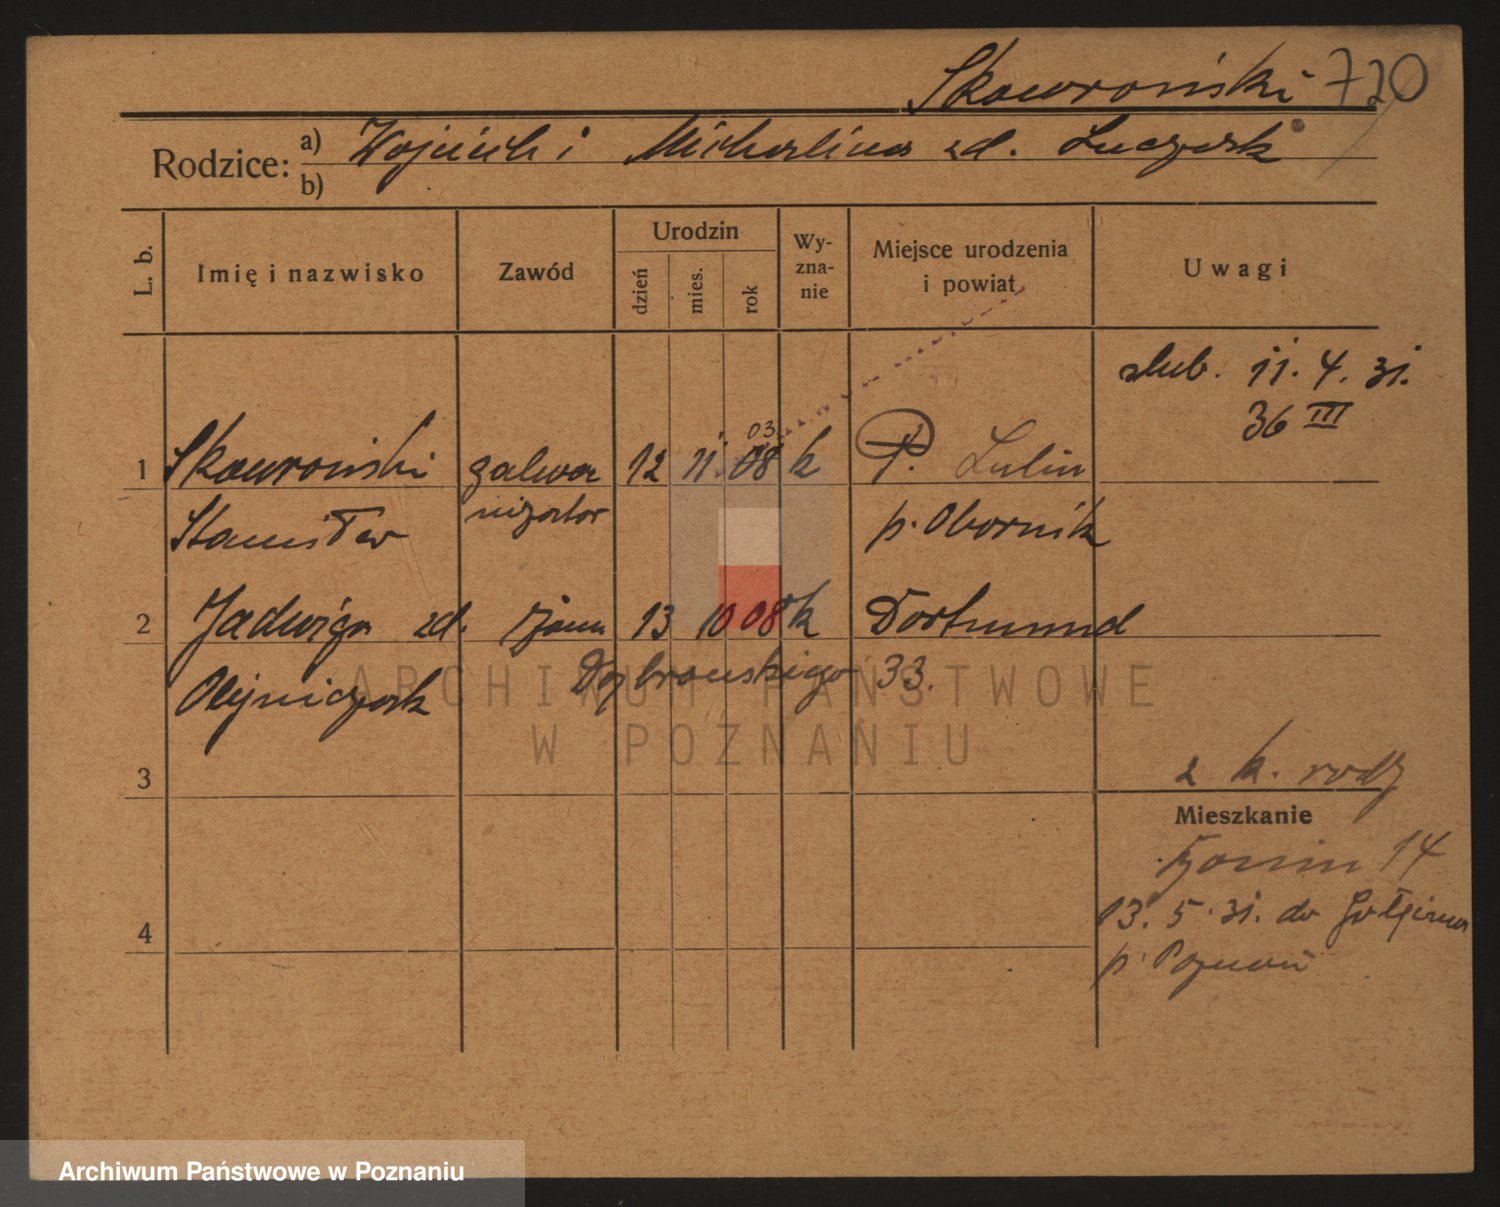 Skowroński 720
Rodzice: a) Wojciech i Michalina zd. Łuczak
b)
L. b. Imię i nazwisko Zawód Urodzin dzień mies. rok Wy-zna-nie Miejsce urodzenia i powiat Uwagi
ślub. 11. 4. 31.
36 III
03
1 Skowroński galwa 12 11 08 k P. Lulin
Stanisław nizator p. Obornik
2 Jadwiga zd. żona 13 10 08 k Dortmund
Olejniczak Dąbrowskiego 33.
ARCHIWUM PAŃSTWOWE
W POZNANIU
3 2 k. rodz
Mieszkanie
14
4 13. 5. 31. do
p. Poznań
Archiwum Państwowe w Poznaniu